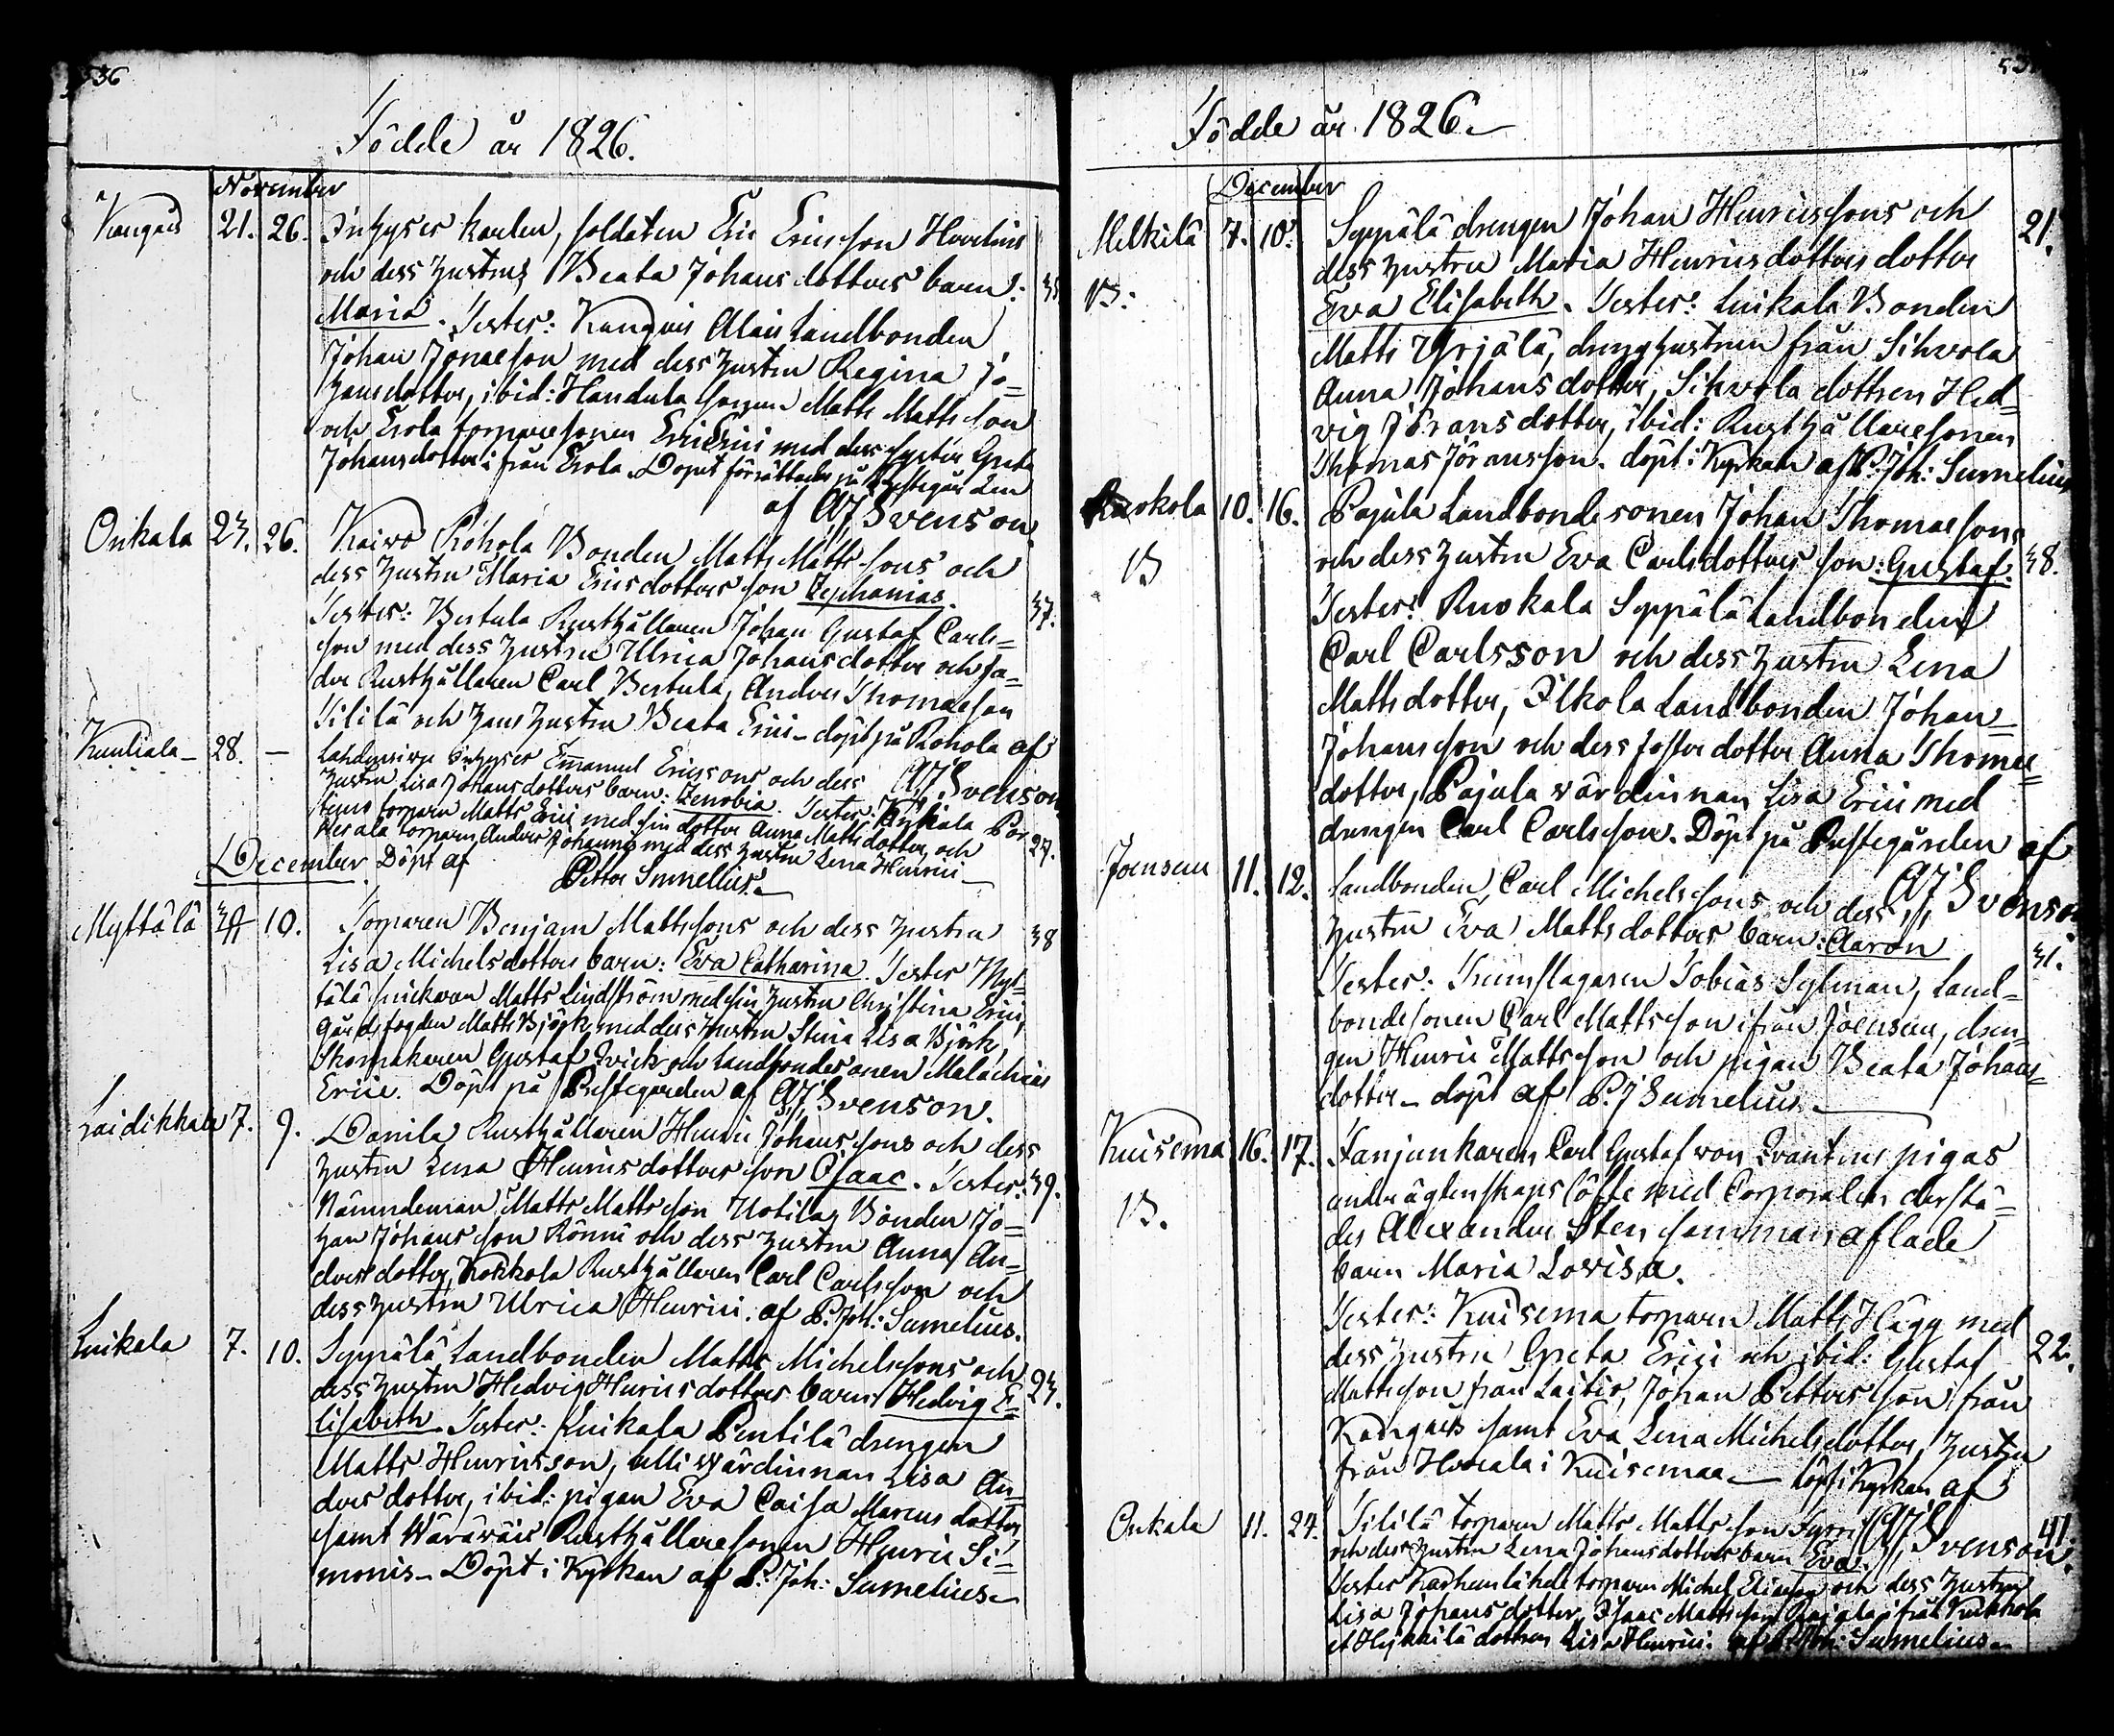 536
Födde år 1826.
November
Kangais 21. 26. Inhyses karlen, soldaten Eric Ericsson Hvelius
och dess hustrus Beata Johansdotters barn: 35
Maria. Tester: Kangais Alais Landbonden
Johan Jonaeson med dess hustru Regina Jo=
hansdotter, ibid: Handula sonen Matts Mattsson
och Erola torparesonen Eric Erici med dess syster Greta
Johansdotter ifrån Erola. Dopet förrättades på Prestegården
af A J Svenson.
Onkala 23. 26. Kaivo Röhola Bonden Matts Mattssons och
dess hustru Maria Ericsdotters son Zephanias.
Tester: Bertula Rusthållaren Johan Gustaf Carls= 37.
son med dess hustru Ulrica Johansdotter och fa=
der Rusthållaren Carl Bertula, Anders Thomaeson
Tililä och hans hustru Beata Erici. döpt på Rohola af
A J Svenson
Kuuliala 28. — Lahdensivu Inhyses Emanuel Ericssons och dess
hustru Lisa Johansdotters barn: Zenobia. Tester: Kykala Por
teus torparn Matts Erici med sin dotter Anna Mattsdotter, och 27.
Merala torparn Anders Johannis med dess hustru Lena Henrici
December. Döpt af Petter Sumelius.
Myttälä 10. Torparen Benjam Mattssons och dess hustru 38
Lisa Michelsdotters barn: Eva Catharina. Tester Myt=
tälä snickaren Matts Lindström med sin hustru Christina Erici,
Gårdsfogden Matts Björk med dess hustru Stina Lisa Björk,
Skomakaren Gustaf Qvick och Landbondesonen Malachias
Erici. Döpt på Prestegården af A J Svenson.
Laidikkala 7. 9. Danila Rusthållaren Henric Johanssons och dess
hustru Lena Henricsdotters son Isaac. Tester: 39.
Nämndeman Matts Mattsson Uotila, Bonden Jo=
han Johansson Rönni och dess hustru Anna An=
dersdotter, Kokkola Rusthållaren Carl Carlsson och
dess hustru Ulrica Henrici. af P. Joh: Sumelius.
Luikala 7. 10. Seppälä Landbonden Matts Michelssons och
dess hustru Hedvig Henricsdotters barn: Hedvig E= 23.
lisabeth. Tester: Luikala Pentilä drengen
Matts Henricsson, Ulli wärdinnan Lisa An=
dersdotter, ibid: pigan Eva Caisa Marcusdotter
samt Wäräwäis Rusthållaresonen Henric Si=
monis. Döpt i Kyrkan af P. Joh: Sumelius.
Födde år 1826.
December
Melkilä 7. 10. Seppälä drengen Johan Henricssons och 21.
B: dess hustru Maria Henricsdotters dotter
Eva Elisabeth. Tester: Luikala Bonden
Matts Yrjälä, dreng hustrun från Sihvola
Anna Johansdotter, Sihvola dottren Hed=
vig Jöransdotter, ibid: Rusthållaresonen
Thomas Jöransson. döpt i Kyrkan af P. Joh: Sumelius
Ruokola 10. 16. Pajula Landbondesonen Johan Thomaesons
B och dess hustru Eva Carlsdotters son: Gustaf. 38.
Tester: Ruokala Seppälä Landbonden
Carl Carlsson och dess hustru Lena
Mattsdotter, Ilkola Landbonden Johan
Johansson och dess foster dotter Anna Thomae=
dotter, Pajula wärdinnan Lisa Erici med
drengen Carl Carlsson. Döpt på Prestegården af
A J Svenson.
Joensuu 11. 12. Landbonden Carl Michelssons och dess
hustru Eva Mattsdotters barn: Aaron 31.
Tester: Trumslagaren Tobias Sylman, Land=
bondesonen Carl Mattsson ifrån Joensuu, dren=
gen Henric Mattsson och pigan Beata Johans=
dotter. döpt af P. J Sumelius.
Kuisema 16. 17. Fanjunkaren Carl Gustaf von Qvantens pigas
B. under ägtenskaps löfte med Corporalen derstä=
des Alexander Sten sammanaflade
barn Maria Lovisa.
Tester: Kuisema torparn Matts Hägg med
dess hustru Greta Erici och ibid: Gustaf 22.
Mattsson från Laitis, Johan Pettersson från
Kangais samt Eva Lena Michelsdotter, hustru
från Hovala i Kuisemaa. döpt i Kyrkan af
A J Svenson.
Onkala 11. 24. Tililä torparn Matts Mattsson 41.
och dess hustru Lena Johansdotters barn Eva.
Tester Karhunlähde torparn Michel Eliaeson och dess hustru
Lisa Johansdotter, Isaac Mattsson Rajala ifrån Kukkola
et Heikkilä dottren Lisa Henrici. af P. Joh: Sumelius.